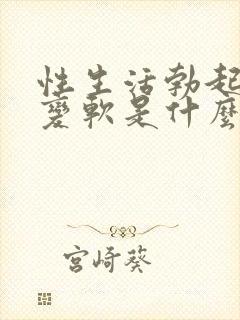 性生活勃起
变軟是什麼
宫崎葵